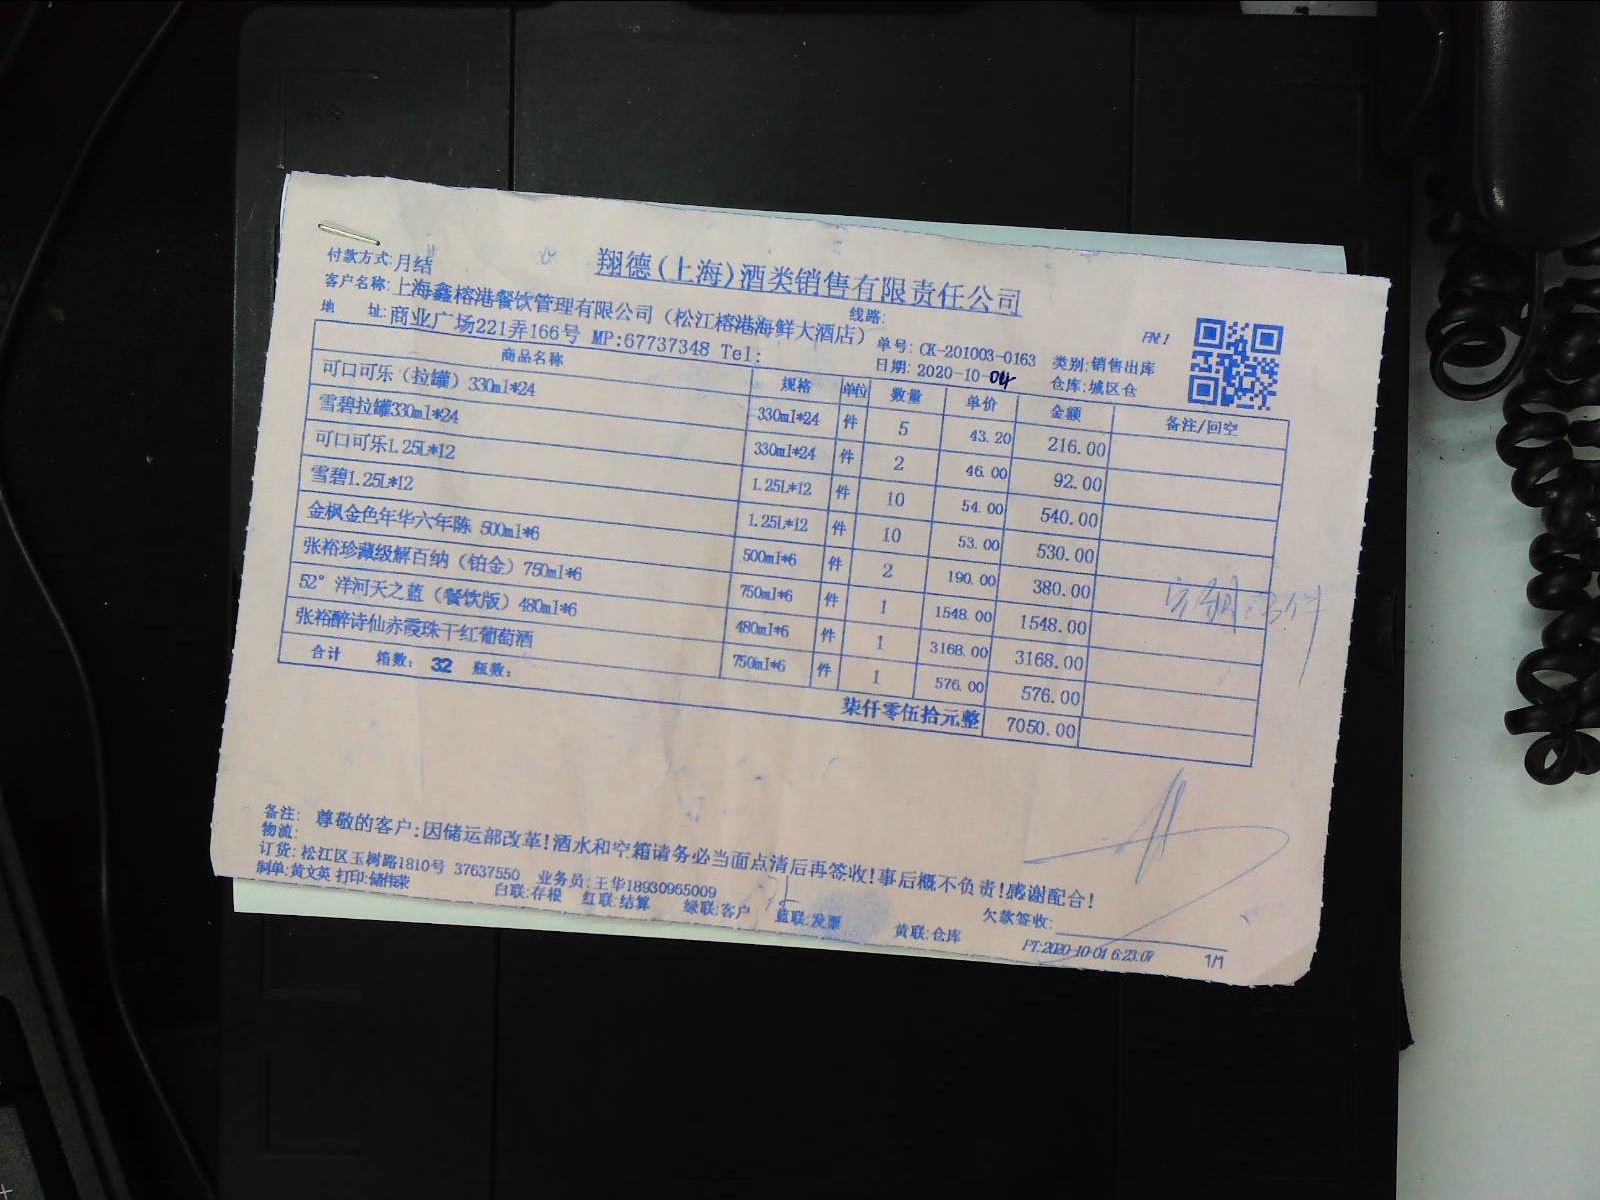 付款方式:月结
翔德(上海)酒类销售有限责任公司
客户名称:上海鑫榕港餐饮管理有限公司（松江榕港海鲜大酒店）
线路:
地 址:商业广场221弄166号 MP:67737348 Tel:
单号: CK-201003-0163 类别:销售出库
日期: 2020-10-04 仓库:城区仓
商品名称 规格 单位 数量 单价 金额 备注/回空
可口可乐（拉罐）330ml*24 330ml*24 件 5 43.20 216.00
雪碧拉罐330ml*24 330ml*24 件 2 46.00 92.00
可口可乐1.25L*12 1.25L*12 件 10 54.00 540.00
雪碧1.25L*12 1.25L*12 件 10 53.00 530.00
金枫金色年华六年陈 500ml*6 500ml*6 件 2 190.00 380.00
张裕珍藏级解百纳（铂金）750ml*6 750ml*6 件 1 1548.00 1548.00
52° 洋河天之蓝（餐饮版）480ml*6 480ml*6 件 1 3168.00 3168.00
张裕醉诗仙赤霞珠干红葡萄酒 750ml*6 件 1 576.00 576.00
合计 箱数: 32 瓶数: 柒仟零伍拾元整 7050.00
备注: 尊敬的客户:因储运部改革!酒水和空箱请务必当面点清后再签收!事后概不负责!感谢配合!
物流:
订货: 松江区玉树路1810号 37637550 业务员:王华18930965009
制单:黄文英 打印:储伟荣 白联:存根 红联:结算 绿联:客户 蓝联:发票 黄联:仓库
欠款签收:
PT:2020-10-04 6:23:07 1/1